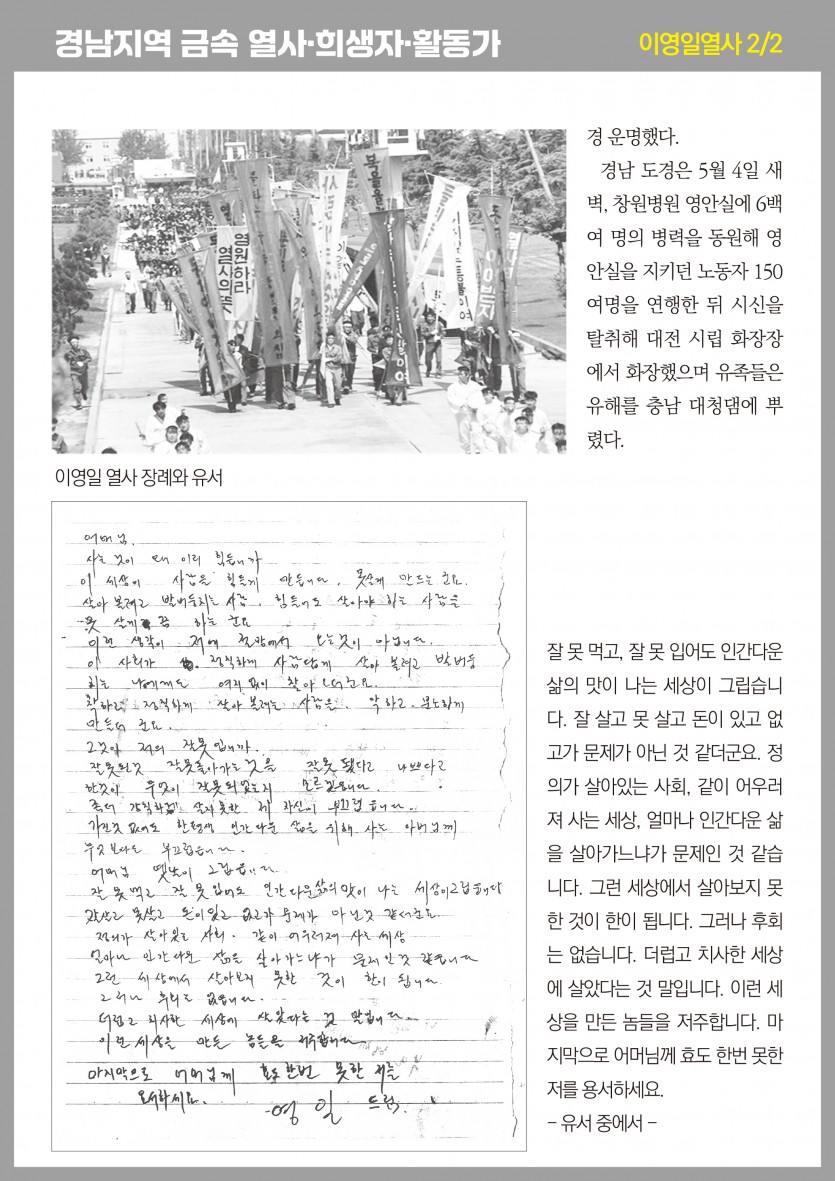 경남지역 금속 열사·희생자·활동가
이영일열사 2/2
경 운명했다.
경남 도경은 5월 4일 새
벽, 창원병원 영안실에 6백
여 명의 병력을 동원해 영
안실을 지키던 노동자 150
여명을 연행한 뒤 시신을
탈취해 대전 시립 화장장
에서 화장했으며 유족들은
유해를 충남 대청댐에 뿌
렸다.
영원하라
열사의 뜻
이영일 열사 장례와 유서
어머님.
사는 것이 왜 이리 힘듭니까
이 세상이 사람을 힘들게 만듭니다. 못살게 만드는군요.
살아 볼려고 발버둥치는 사람. 힘들어도 살아야 하는 사람을
못 살게끔 하는군요
이런 생각이 저에 철방에서 오는것이 아닙니다.
이 사회가 정직하게 사람답게 살아 볼려고 발버둥
치는 나에게도 여지없이 찾아
착하고 정직하게 살아 볼려는 사람을 악하고 분노하게
만들더군요.
그것이 저의 잘못입니까.
잘못된것 잘못돌아가는 것을 잘못됐다고 나쁘다고
한것이 무엇이 잘못되었는지 모르겠읍니다.
좀더 강직하게 살지못한 제 자신이 부끄럽습니다.
가진것 없어도 한평생 인간다운 삶을 위해 사는 아버님께
무엇보다도 부끄럽습니다.
어머님 옛날이 그립습니다
잘 못먹고 잘 못입어도 인간다운 삶의 맛이 나는 세상이 그립습니다
잘살고 못살고 돈이 있고 없고가 문제가 아닌것 같더군요
정의가 살아있는 사회. 같이 어우러져 사는 세상
얼마나 인간다운 삶을 살아가느냐가 문제인것 같습니다
그런 세상에서 살아보지 못한 것이 한이 됩니다.
그러나 후회는 없습니다.
더럽고 치사한 세상에 살았다는 것 말입니다.
이런 세상을 만든 놈들을 저주합니다
마지막으로 어머님께 효도 한번 못한 저를
용서하세요.
영일 드림.
잘 못 먹고, 잘 못 입어도 인간다운
삶의 맛이 나는 세상이 그립습니
다. 잘 살고 못 살고 돈이 있고 없
고가 문제가 아닌 것 같더군요. 정
의가 살아있는 사회, 같이 어우러
져 사는 세상, 얼마나 인간다운 삶
을 살아가느냐가 문제인 것 같습
니다. 그런 세상에서 살아보지 못
한 것이 한이 됩니다. 그러나 후회
는 없습니다. 더럽고 치사한 세상
에 살았다는 것 말입니다. 이런 세
상을 만든 놈들을 저주합니다. 마
지막으로 어머님께 효도 한번 못한
저를 용서하세요.
– 유서 중에서 –